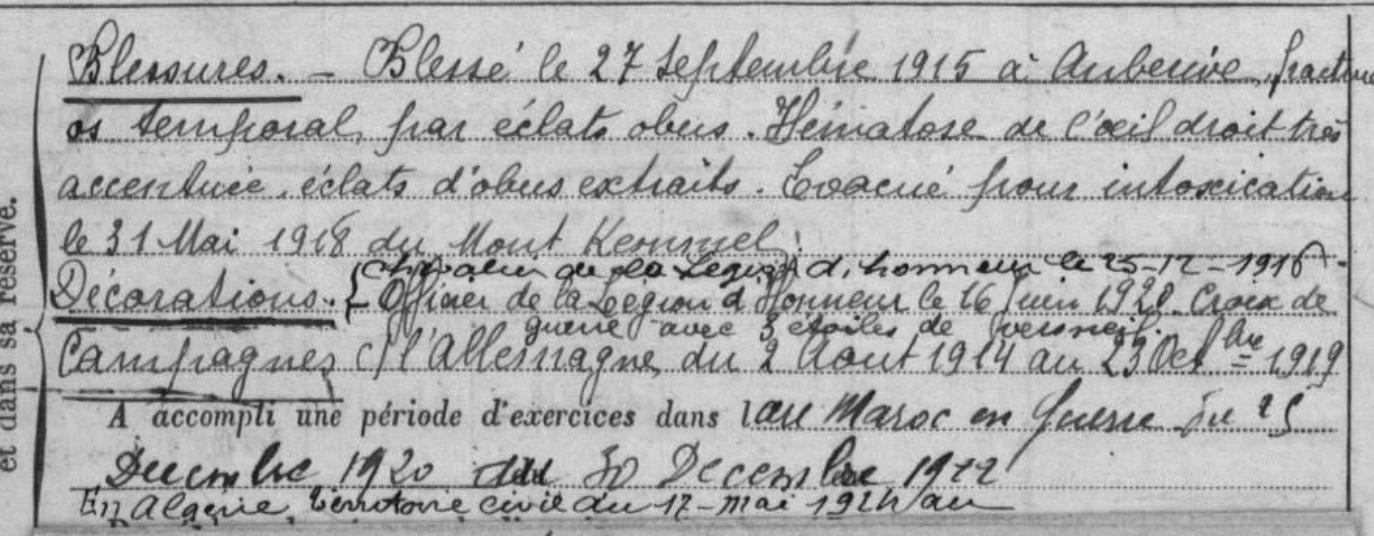 et dans sa réserve.
Blessures. – Blessé le 27 Septembre 1915 à Auberive, fracture
os temporal, par éclats obus. Hématose de l'œil droit très
accentuée, éclats d'obus extraits. Evacué pour intoxication
le 31 Mai 1918 du Mont Kemmel.
Chevalier de la Légion d'honneur le 25-12-1916
Décorations. { Officier de la Légion d'Honneur le 16 Juin 1920. Croix de
guerre avec 3 étoiles de vermeil.
Campagnes c/ l'Allemagne du 2 Août 1914 au 23 Octbre 1919
A accompli une période d'exercices dans l au Maroc en guerre du 25
Décembre 1920 au 30 Décembre 1922
En Algérie, territoire civil du 17-Mai 1924 au